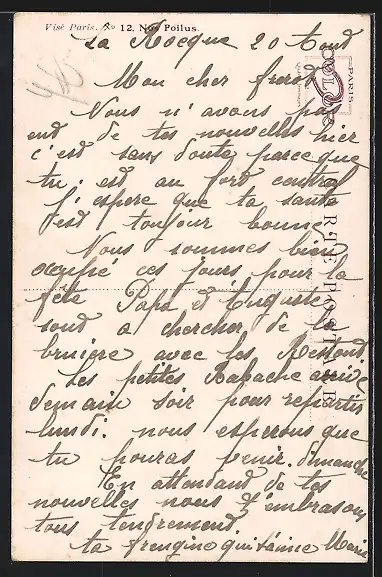 Visé Paris. No 12. Nos Poilus.
La Rocque 20 Aoud
Mon cher frere
Nous n'avons pas
eud de tes nouvelles hier
c'est sans doute parce que
tu est au ford central
j'espere que ta sante
est toujour bonne
Nous sommes bien
ocupié ces jours pour la
fête Papa et Auguste
sond a chercher de la
bruiere avec les Restond
Les petites Rabache arrive
demain soir pour repartir
lundi. nous esperons que
tu pouras venir dimanche
En attendand de tes
nouvelles nous t'embrasons
tous tendrement.
ta frengine qui t'aime Marie
CARTE POSTALE
PARIS